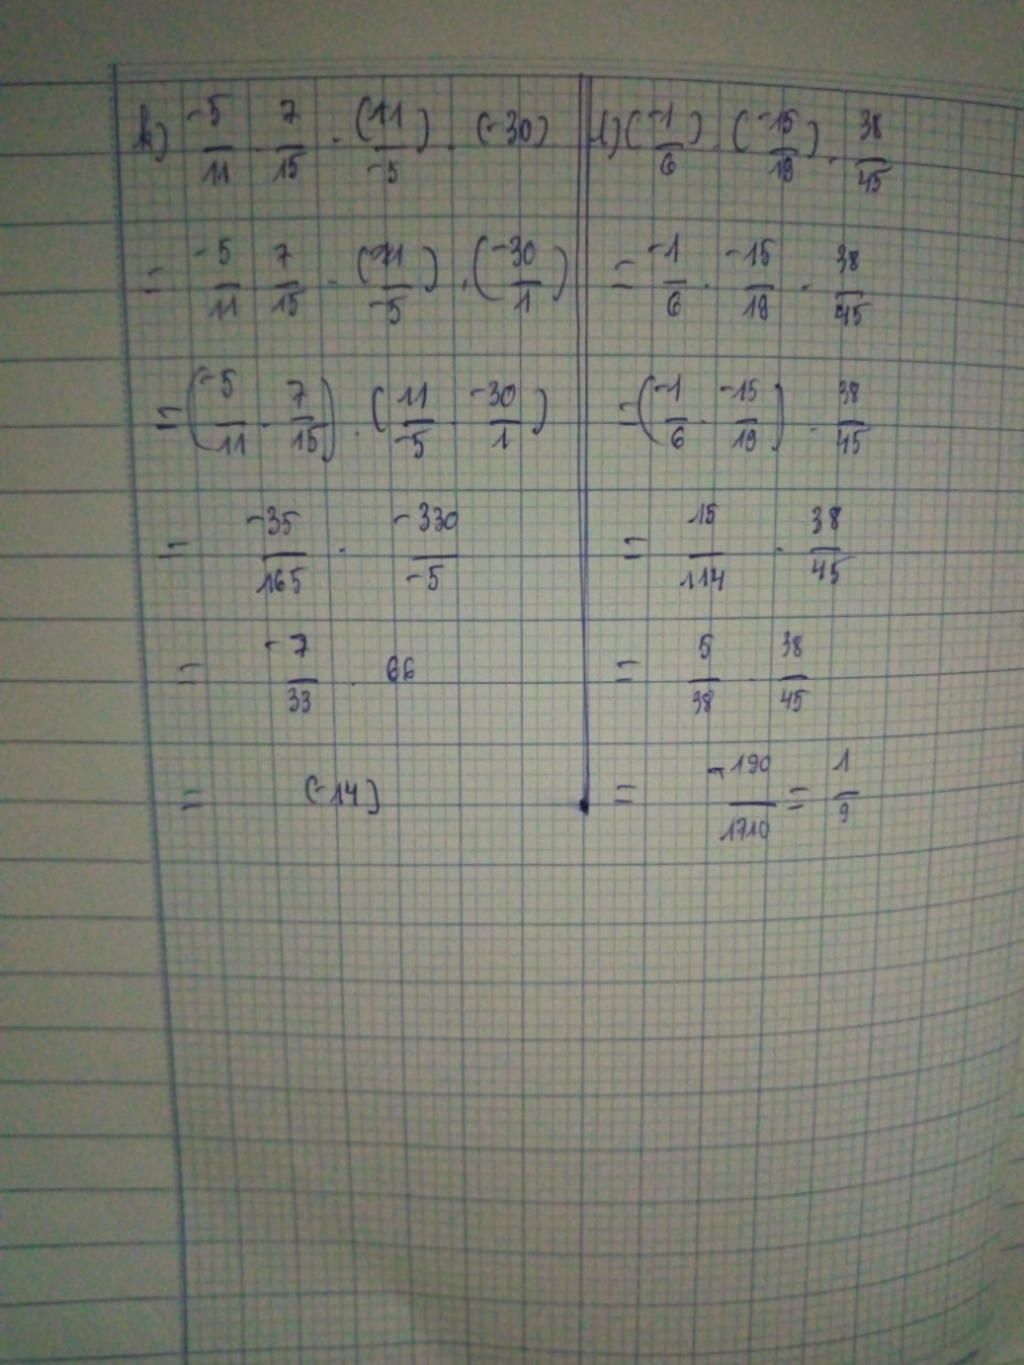 k) -5/11 · 7/15 · (11/-5) · (-30)
= -5/11 · 7/15 · (11/-5) · (-30/1)
= (-5/11 · 7/15) · (11/-5 · -30/1)
= -35/165 · -330/-5
= -7/33 · 66
= (-14)
l) (-1/6) · (-15/19) · 38/45
= -1/6 · -15/19 · 38/45
= (-1/6 · -15/19) · 38/45
= 15/114 · 38/45
= 5/38 · 38/45
= -190/1710 = 1/9